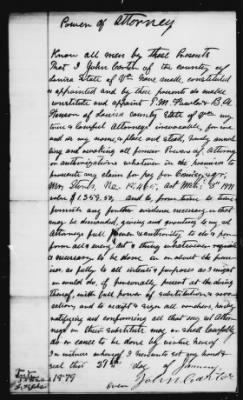 Power of Attorney
Know all men by these Presents
That I John Carter of the county of
Louisa State of Va. have made, constituted
& appointed and by these presents do make
constitute and appoint P.M. B.A.
of Louisa county State of Va. my
true & lawful Attorneys irrevocable, for me
and in my name, place and stead, hereby annul-
ling and revoking all former Powers of Attorney
or authorizations whatever in the premises to
prosecute my claim for pay for
Stores, No.
value $1.359.50, and to, from time to time
furnish any further evidence necessary, or that
may be demanded, giving and granting to my sd
Attorneys full power & authority to do & per-
form all & every act & thing whatsoever requisite
& necessary to be done in or about the prem-
ises as fully to all intents & purposes as I might
or could do, if personally present at the doing
thereof, with full power of substitution & revo-
cation, and to receipt & sign all vouchers, hereby
ratifying and confirming all that my sd Attor-
neys or their substitute may or shall lawfully
do or cause to be done by virtue hereof
In witness whereof I hereunto set my hand &
seal this 29th day of January
1879
John Carter